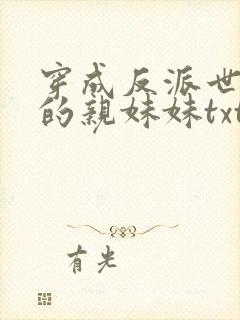 穿成反派世
的亲妹妹txt
有光